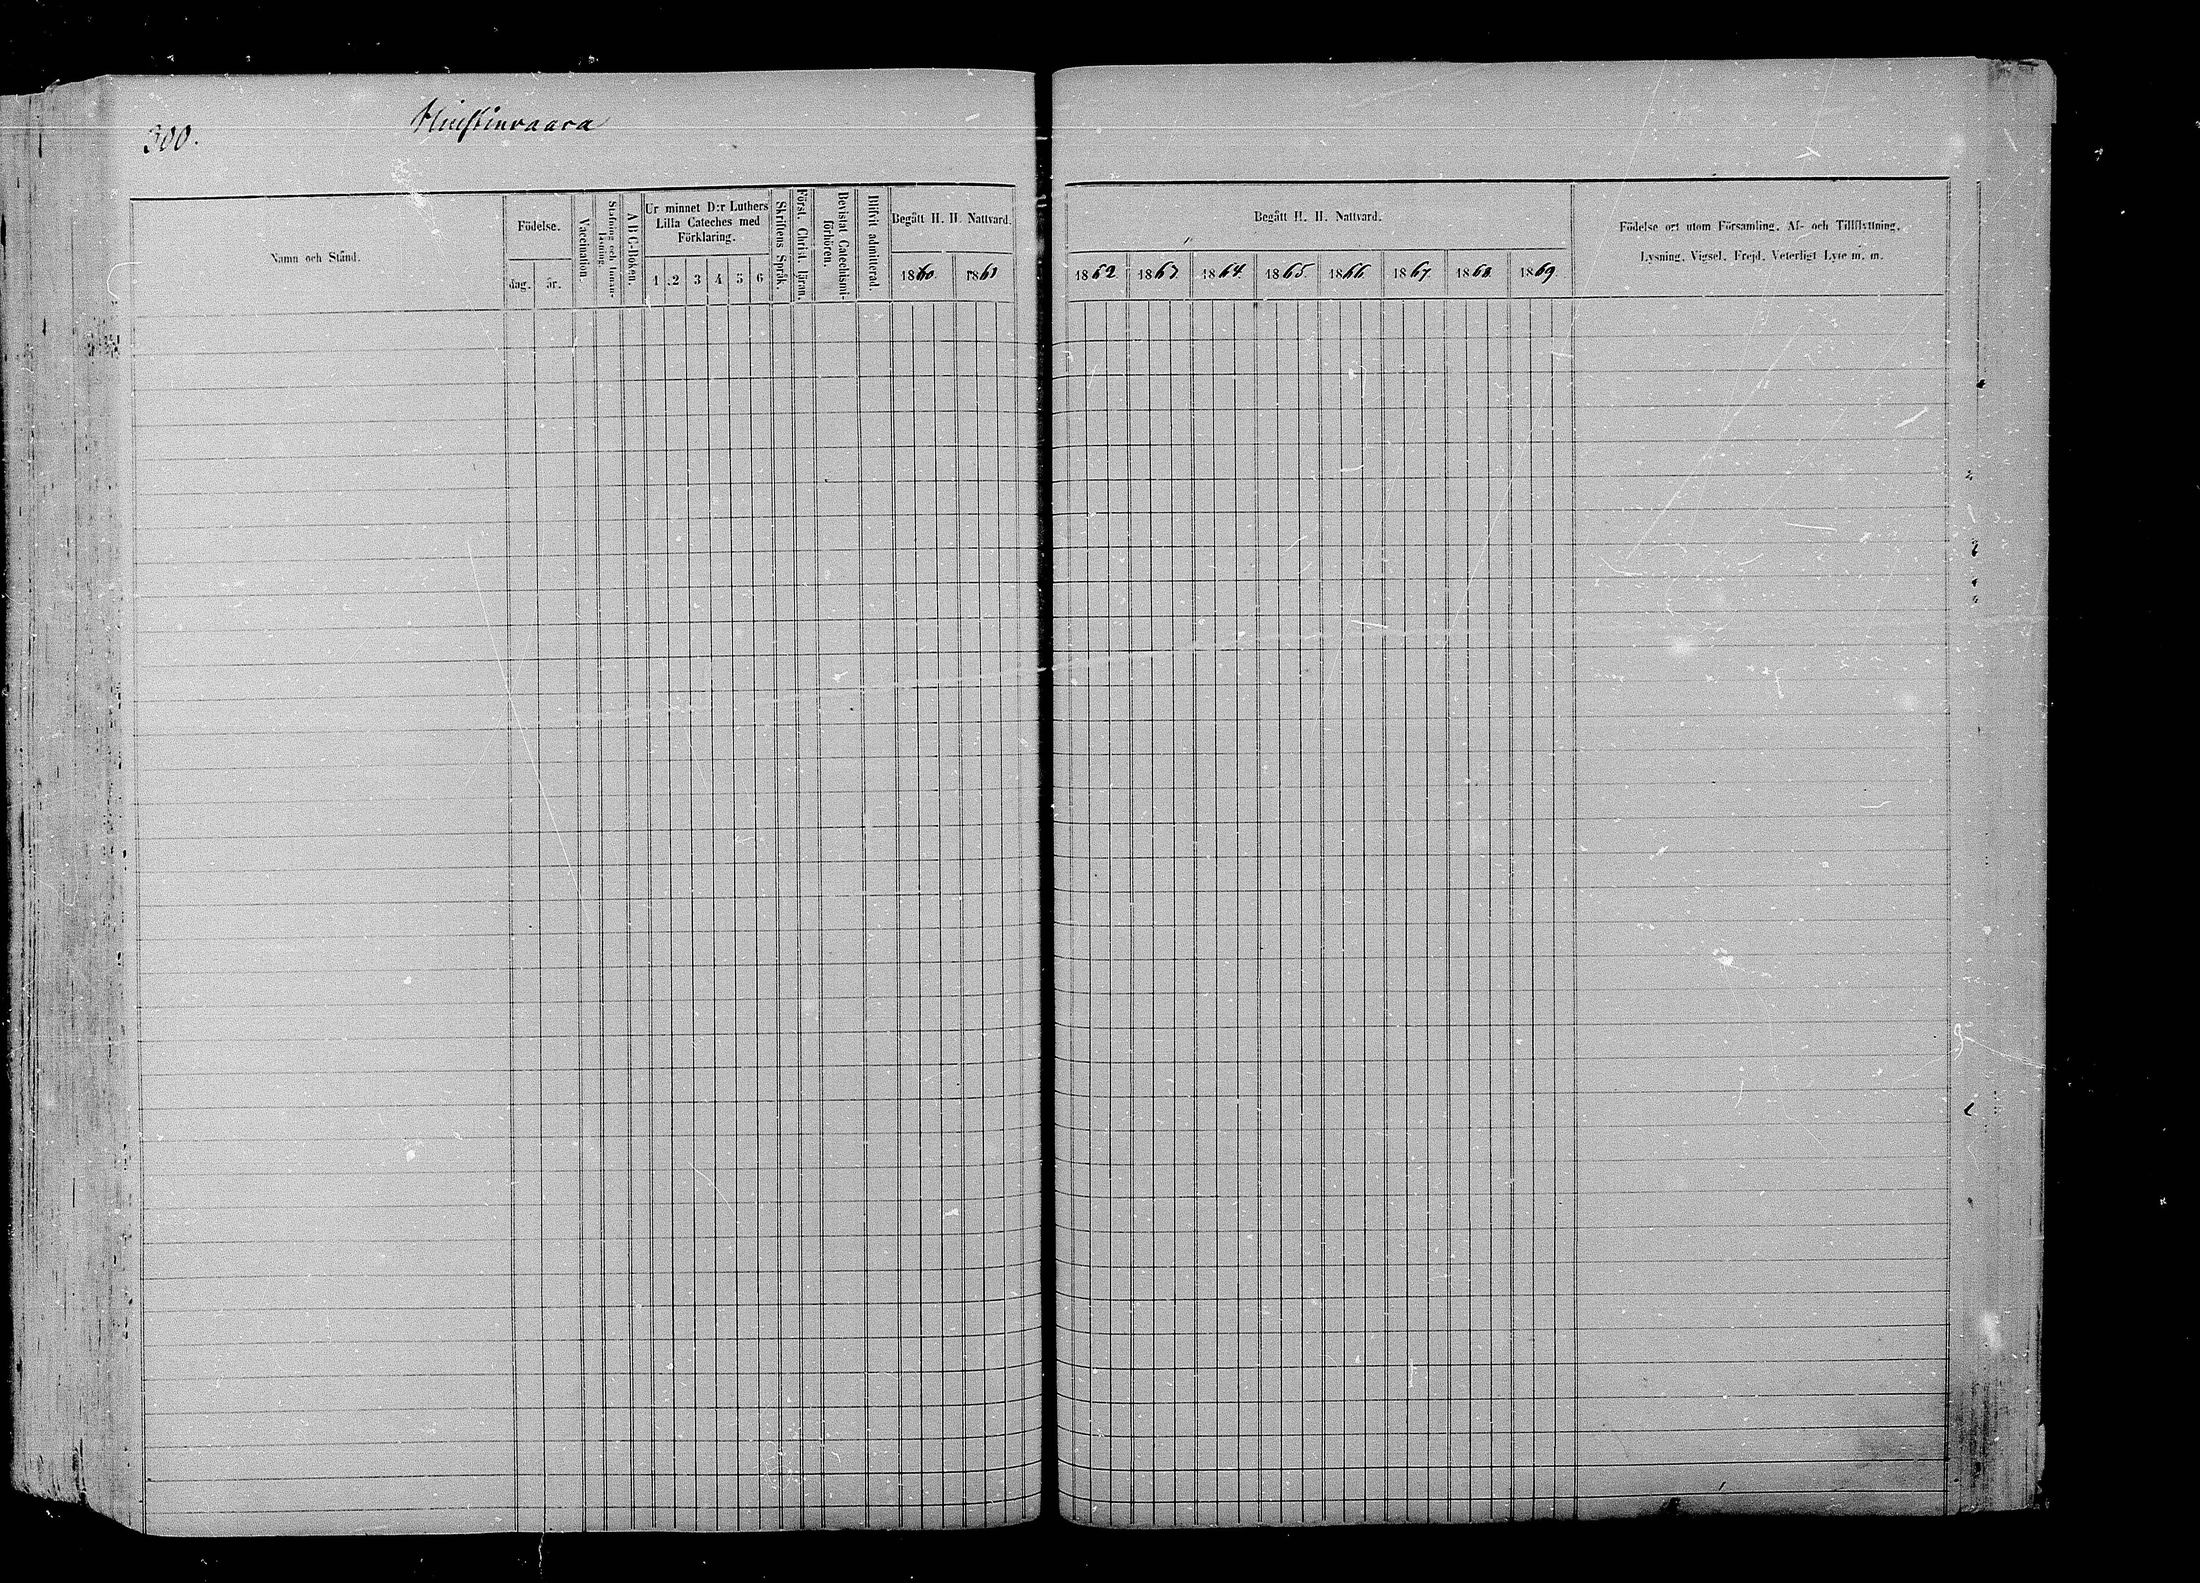 300.
Huistinvaara
Namn och Stånd.
Födelse.
dag. år.
Vaccination.
Stafning och Innanläsning.
A B C-Boken.
Ur minnet D:r Luthers
Lilla Cateches med
Förklaring.
1 2 3 4 5 6
Skriftens Språk.
Först. Christ. läran.
Bevistat Catechismiförhören.
Blifvit admitterad.
Begått H. H. Nattvard.
1860. 1861
Begått H. H. Nattvard.
1862 1863 1864. 1865. 1866 1867. 1868 1869.
Födelse ort utom Församling, Af- och Tillflyttning,
Lysning, Vigsel, Frejd, Veterligt Lyte m. m.